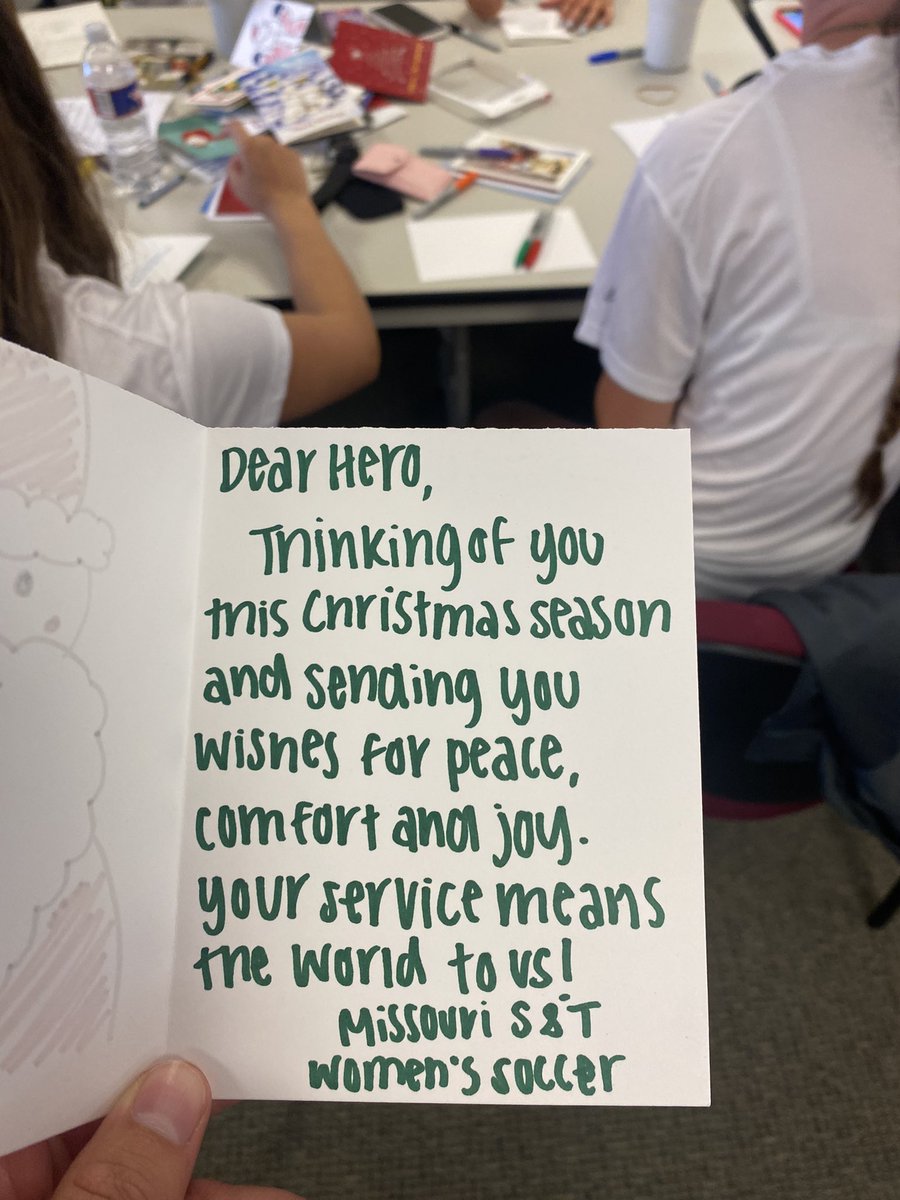 Dear Hero,
Thinking of you
this Christmas season
and sending you
wishes for peace,
comfort and joy.
Your service means
the world to us!
Missouri S&T
Women's soccer